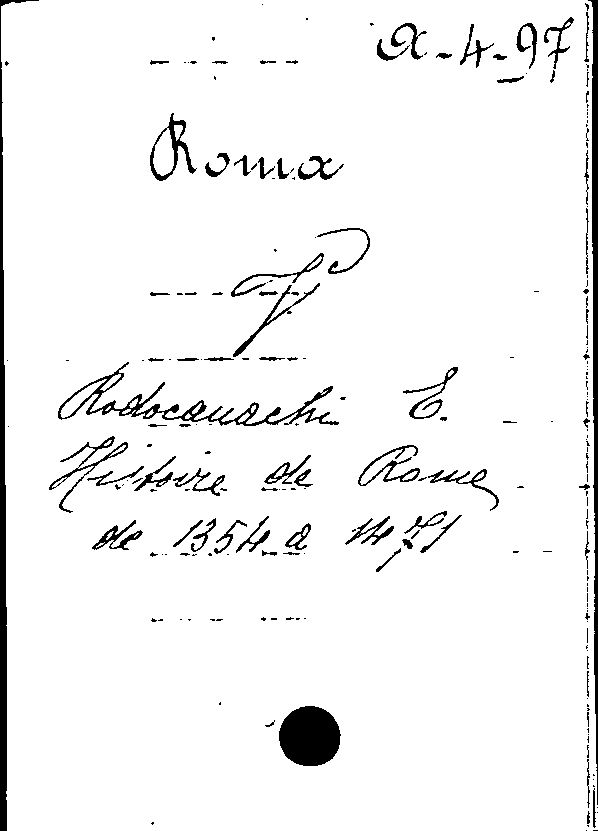 A-4-97
Roma
V
Rodocanachi E.
Histoire de Rome
de 1354 a 1471